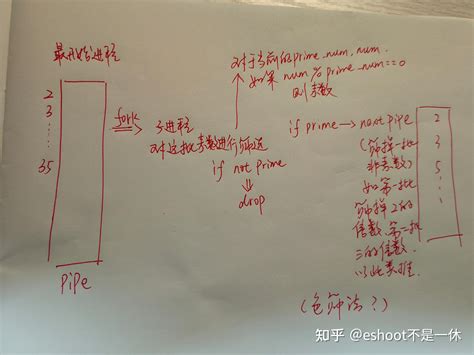 最开始进程
2
3
35
pipe
fork
子进程
对这批素数进行筛选
if not prime
drop
对于当前的prime_num, num
如果 num % prime_num == 0
则素数
if prime → next pipe
(筛掉一批
非素数)
如第一批
筛掉2的
倍数、第二批
三的倍数
以此类推
2
3
5
(色筛法?)
知乎 @eshoot不是一休